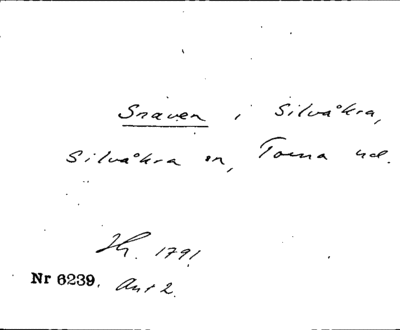 Snaven i Silvåkra,
Silvåkra sn, Torna hd.
H. 1791
Nr 6239. Ant 2.